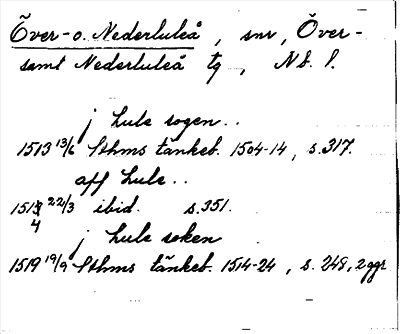 Över- o. Nederluleå, snr, Över-
samt Nederluleå tg, Nb. l.
j Lule sogen..
1513 13/6 Sthms tänkeb. 1504-14, s. 317.
aff Lule..
1514 22/3 ibid. s. 351.
j Lule soken
1519 19/9 Sthms tänkeb. 1514-24, s. 248, 2 ggr